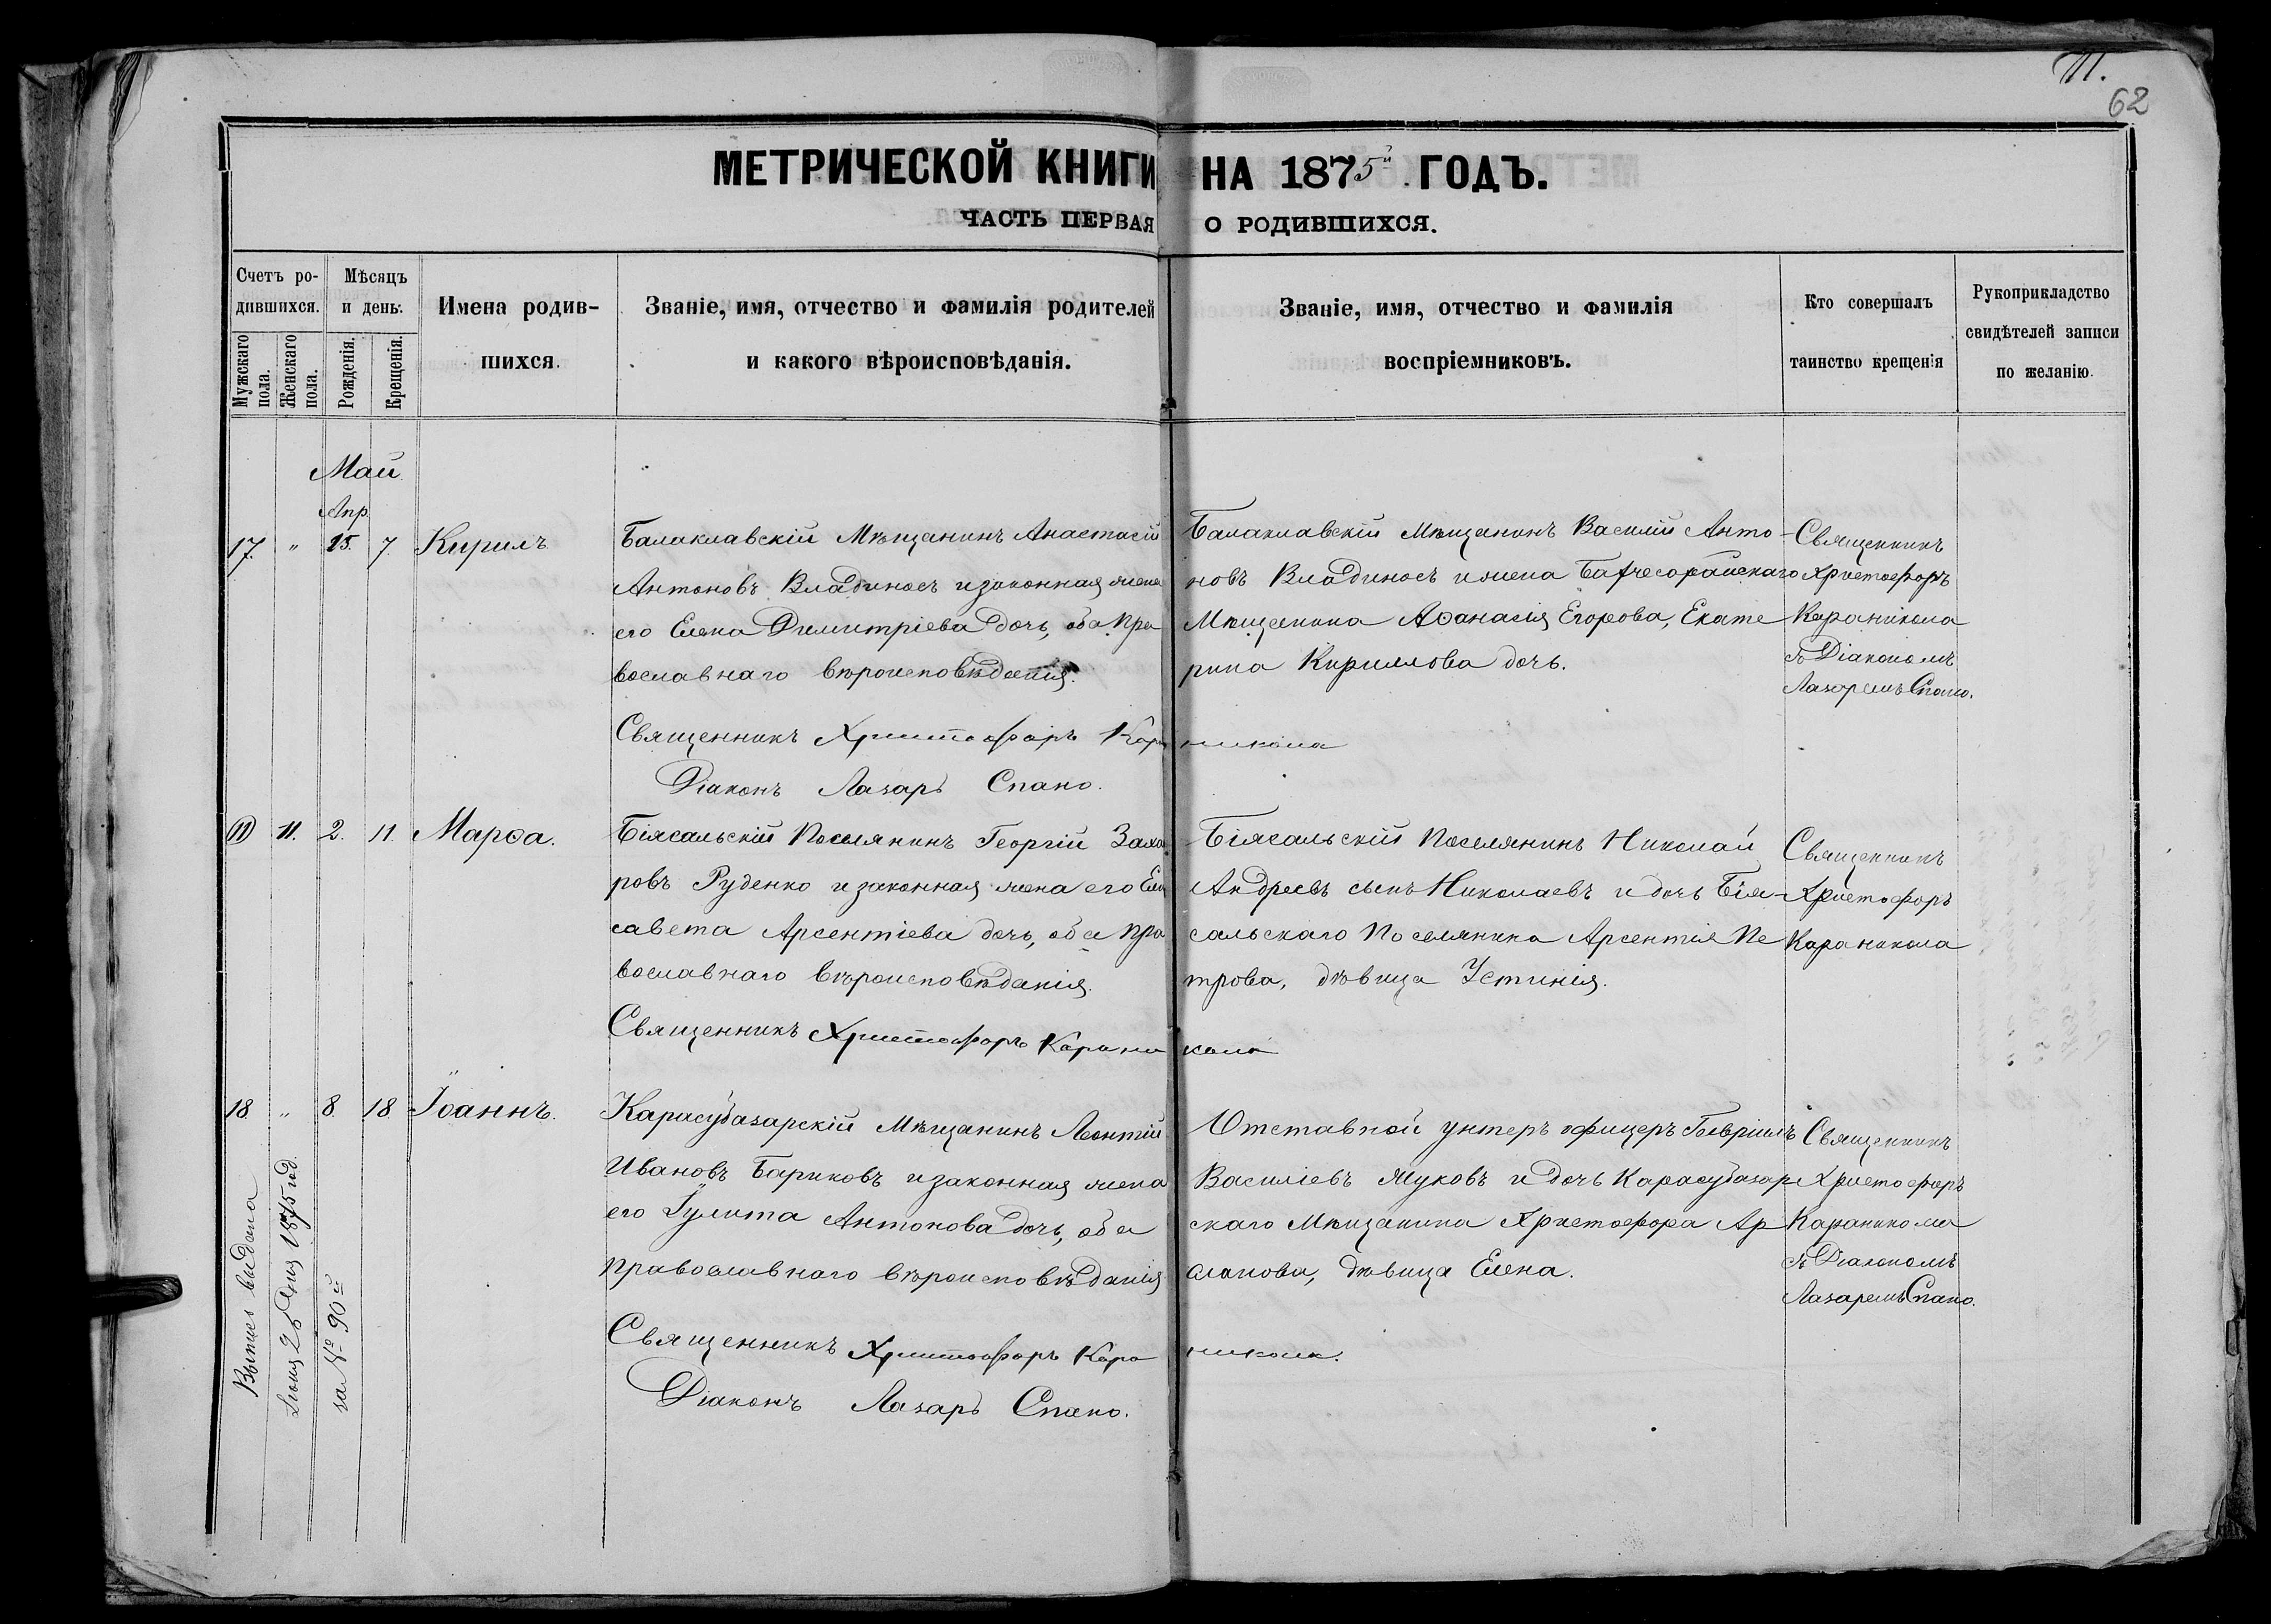 62
МЕТРИЧЕСКОЙ КНИГИ НА 1875й ГОДЪ.
ЧАСТЬ ПЕРВАЯ О РОДИВШИХСЯ.
Счетъ ро-
дившихся.
Мужскаго пола.
Женскаго пола.
Мѣсяцъ
и день:
Рожденія.
Крещенія.
Имена родив-
шихся.
Званіе, имя, отчество и фамилія родителей
и какого вѣроисповѣданія.
Званіе, имя, отчество и фамилія
воспріемниковъ.
Кто совершалъ
таинство крещенія
Рукоприкладство
свидѣтелей записи
по желанію.
Май
Апр.
17 " 15. 7 Кирилъ.
Балаклавскій Мѣщанинъ Анастасій
Антоновъ Владиносъ и законная жена
его Елена Димитріева дочь, оба Пра
вославнаго вѣроисповѣданія.
Балаклавскій Мѣщанинъ Василій Анто-
новъ Владиносъ и жена Бахчесарайскаго
Мѣщанина Аѳанасія Егорова, Екате
рина Кириллова дочь.
Священникъ
Христофоръ
Караникола
съ Діакономъ
Лазаремъ Спано.
Священникъ Христофоръ Караникола
Діаконъ Лазарь Спано.
11. 2. 11. Марѳа.
Біясальскій Поселянинъ Георгій Заха
ровъ Руденко и законная жена его Ели
савета Арсентіева дочь, оба Пра
вославнаго вѣроисповѣданія.
Біясальскій Поселянинъ Николай
Андреевъ сынъ Николаевъ и дочь Бія-
сальскаго Поселянина Арсентія Пе
трова, дѣвица Устинія.
Священникъ
Христофоръ
Караникола
Священникъ Христофоръ Караникола
18 " 8. 18. Іоаннъ.
Карасубазарскій Мѣщанинъ Леонтій
Ивановъ Бариковъ и законная жена
его Іулита Антонова дочь, оба
православнаго вѣроисповѣданія
Отставной унтеръ офицеръ Гавріилъ
Василіевъ Жуковъ и дочь Карасубазар-
скаго Мѣщанина Христофора Ар
сланова, дѣвица Елена.
Священникъ
Христофоръ
Караникола
съ Діакономъ
Лазаремъ Спано.
Священникъ Христофоръ Караникола.
Діаконъ Лазарь Спано.
Выпись выдана
1875 год.
за № 90й